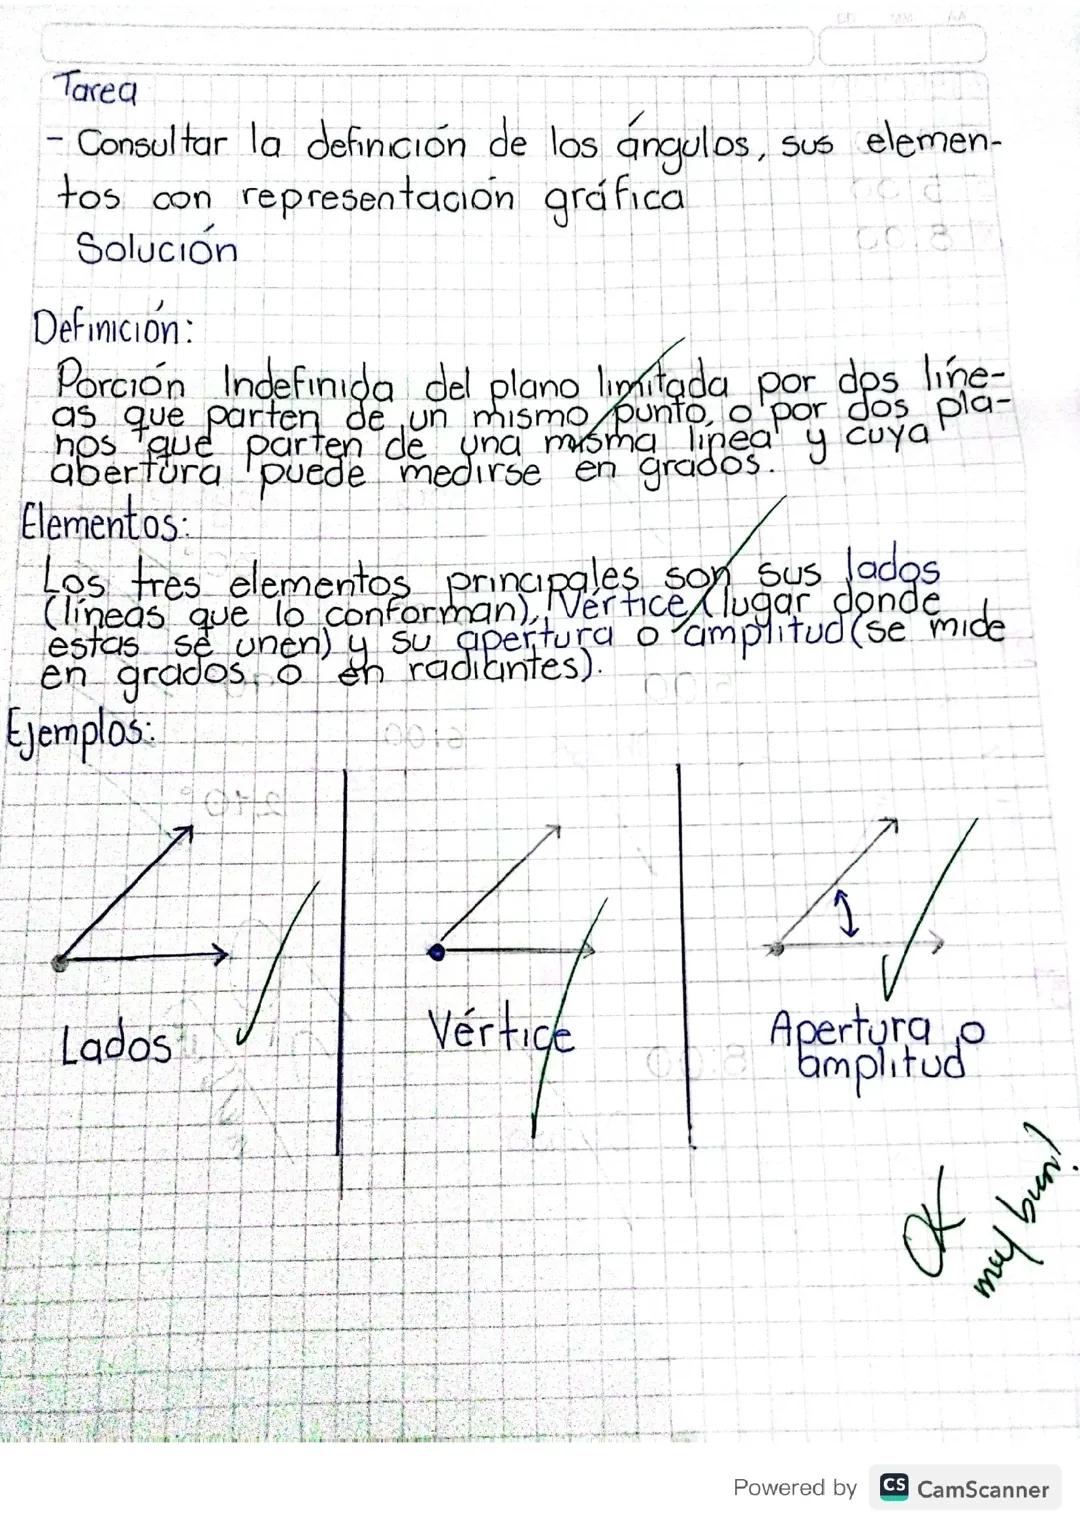 Tarea
- Consultar la definición de los ángulos, sus elemen-
tos con representación gráfica
Solución
Definición:
Porción Indefinida del plano limitada por dos líne-
as que parten de un mismo punto, o por dos pla-
nos que parten de una misma línea y cuya
abertura puede medirse en grados.
Elementos:
Los tres elementos principales son sus lados
(líneas que lo conforman), Vértice (lugar donde
estas se unen) y su apertura o amplitud (se mide
en grados o en radiantes).
Ejemplos:
Lados
Vértice
Apertura o
amplitud
OK
muy buen!
Powered by CS CamScanner